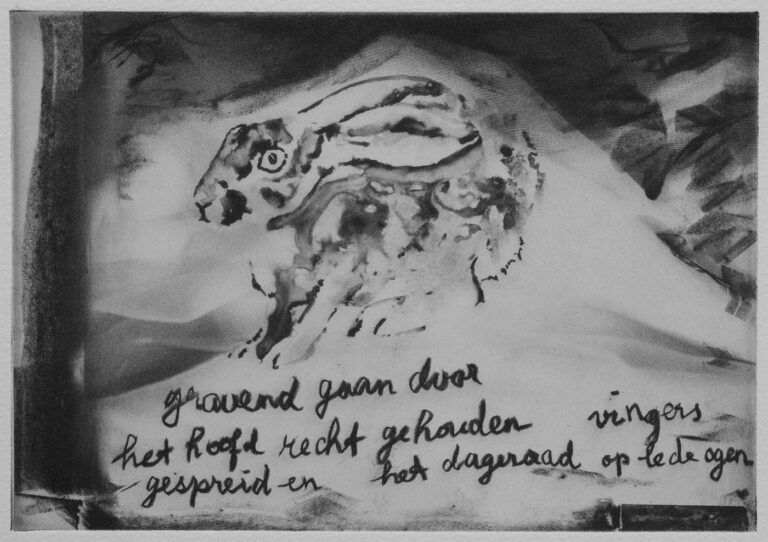 gravend gaan door
het hoofd recht gehouden vingers
gespreid en het dageraad op lede ogen